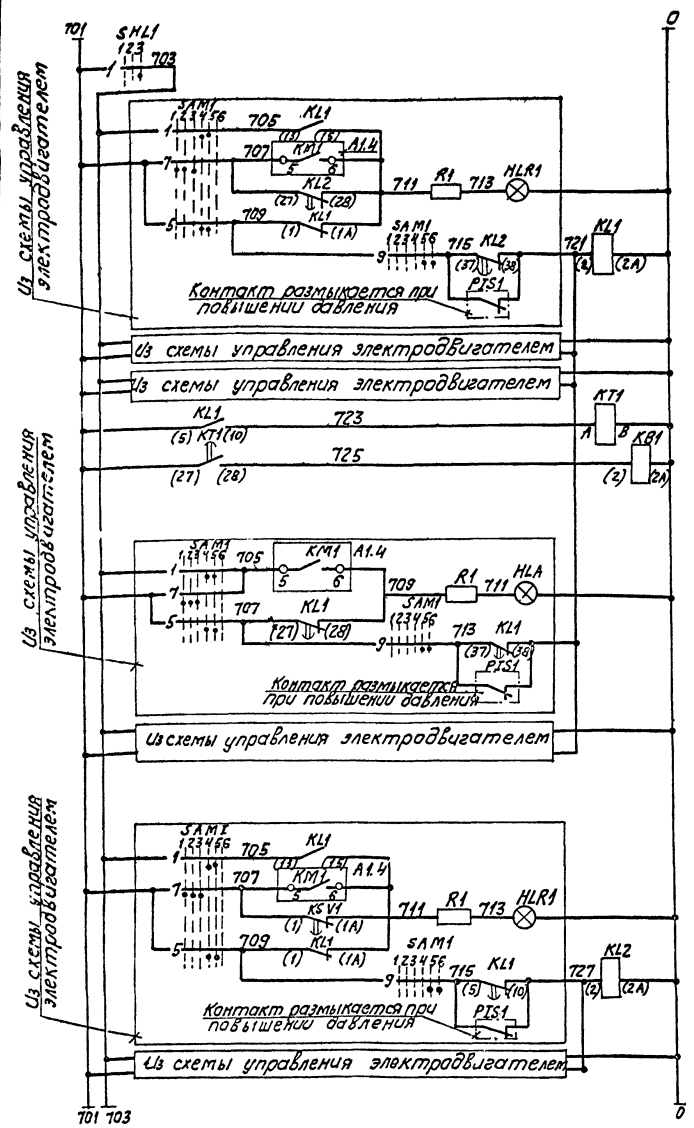 701
0
SHL1
123
1
703
Из схемы управления
электродвигателем
SAM1
123456
1
705
KL1
(13) (15)
7
707
KM1
A1.4
5 6
KL2
(27) (28)
711
R1
713
HLR1
5
709
KL1
(1) (1A)
SAM1
123456
9
715
KL2
(37) (38)
721
KL1
(2) (2A)
PIS1
Контакт размыкается при
повышении давления
Из схемы управления электродвигателем
Из схемы управления электродвигателем
KL1
(5) (10)
723
KT1
A B
KT1
(27) (28)
725
KB1
(2) (2A)
Из схемы управления
электродвигателем
SAM1
123456
1
705
KM1
A1.4
5 6
7
709
R1
711
HLA
5
707
KL1
(27) (28)
SAM1
123456
9
713
KL1
(37) (38)
PIS1
Контакт размыкается
при повышении давления
Из схемы управления электродвигателем
Из схемы управления
электродвигателем
SAM1
123456
1
705
KL1
(13) (15)
7
707
KM1
A1.4
5 6
KSV1
(1) (1A)
711
R1
713
HLR1
5
709
KL1
(1) (1A)
SAM1
123456
9
715
KL1
(5) (10)
727
KL2
(2) (2A)
PIS1
Контакт размыкается при
повышении давления
Из схемы управления электродвигателем
701 703
0